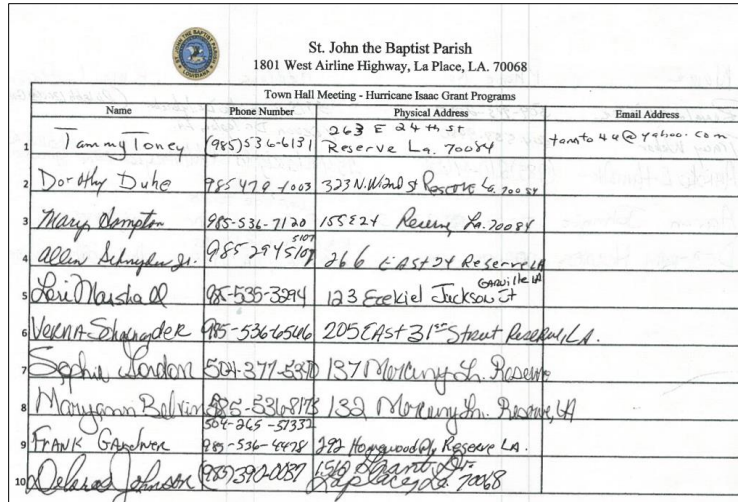 St. John the Baptist Parish
1801 West Airline Highway, La Place, LA. 70068
Town Hall Meeting - Hurricane Isaac Grant Programs
Name Phone Number Physical Address Email Address
263 E 24th st.
1 Tammy Toney (985)536-6131 Reserve La. 70084 tamto44@yahoo.com
2 Dorothy Duhe 985 479 1003 323 N.W. 2nd st Reserve La. 70084
3 Mary Hampton 985-536-7120 155 E 24 Reserve La. 70084
5107
4 Allen Schnyder Jr. 985 294 5107 266 EAST 24 Reserve LA
Garyville LA
5 Lori Marshall 985-535-3294 123 Ezekiel Jackson St
6 VERNA Schexnayder 985-536-6546 205 EAst 31st Street Reserve, LA.
7 Sophia London 504-377-5370 137 Mercury Ln. Reserve
8 Maryann Belvin 985-5368173 132 Mercury Ln. Reserve, LA
504-265-5733
9 FRANK GARDNER 985-536-4478 292 Homewood Pl, Reserve LA.
10 Johnson (985)390-0087 Grant Dr.
Laplace, La. 70068